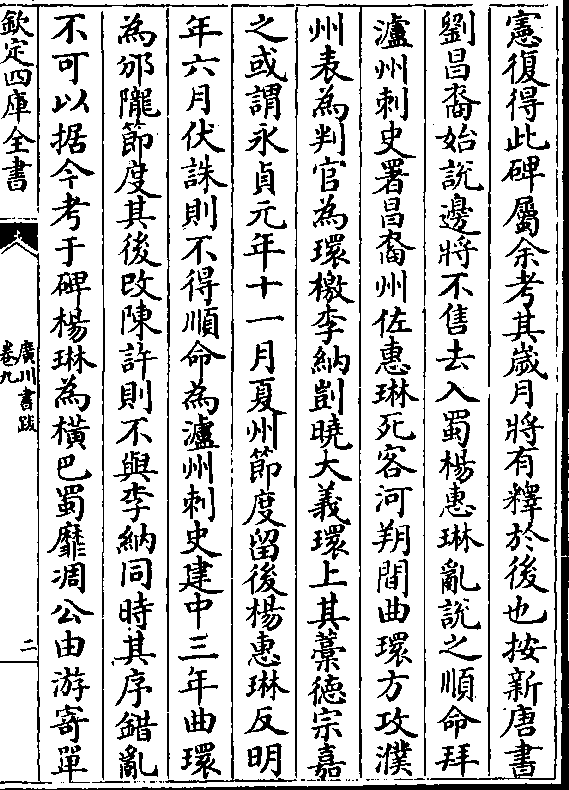 憲復得此碑屬余考其歲月將有釋於後也按新唐書
劉昌裔始說邊將不售去入蜀楊惠琳亂說之順命拜
瀘州刺史署昌裔州佐惠琳死客河朔間曲環方攻濮
州表為判官為環檄李納剴曉大義環上其藁德宗嘉
之或謂永貞元年十一月夏州節度留後楊惠琳反明
年六月伏誅則不得順命為瀘州刺史建中三年曲環
為邠隴節度其後改陳許則不與李納同時其序錯亂
不可以据今考于碑楊琳為橫巴蜀靡凋公由游寄單
欽定四庫全書
廣川書跋
卷九
二